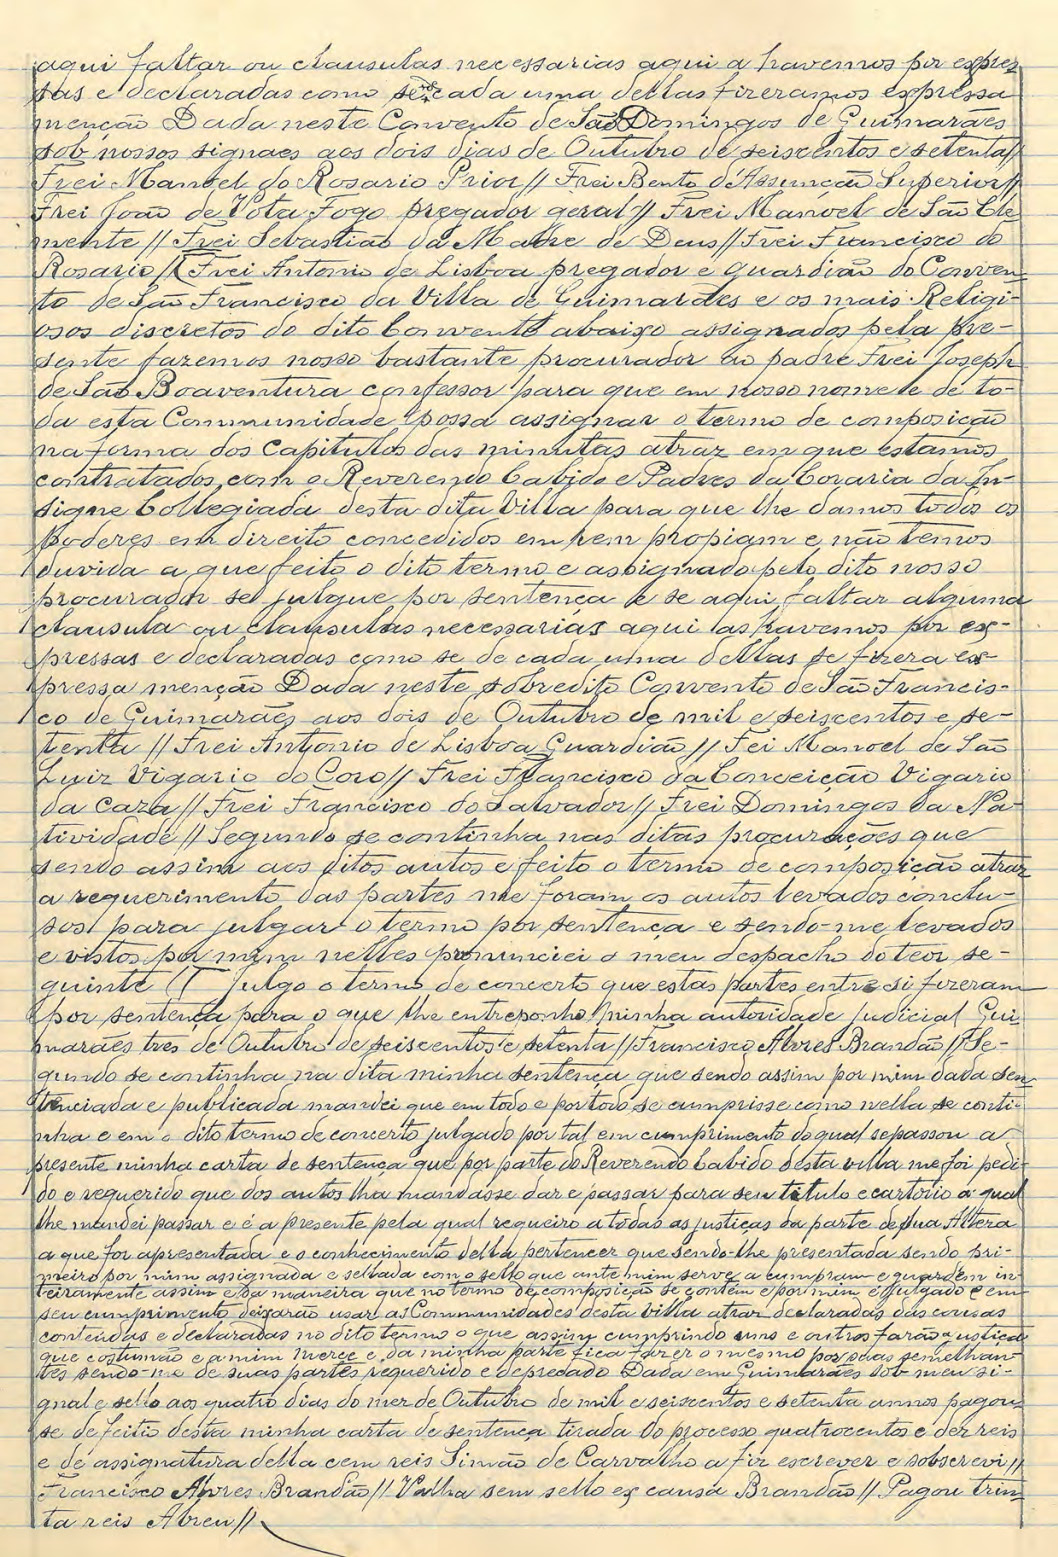 aqui faltar ou clausulas necessarias aqui a havemos por expres
sas e declaradas como se de cada uma dellas fizeramos expressa
menção Dada neste Convento de São Domingos de Guimarães
sob nossos signaes aos dois dias de Outubro de seiscentos e setenta//
Frei Manoel do Rosario Prior// Frei Bento d'Assunção Superior//
Frei João de Vota Fogo pregador geral// Frei Manoel de São Cle
mente// Frei Sebastião da Madre de Deus// Frei Francisco do
Rosario// Frei Antonio de Lisboa pregador e guardião do Conven
to de São Francisco da Villa de Guimarães e os mais Religi-
osos discretos do dito Convento abaixo assignados pela pre-
sente fazemos nosso bastante procurador ao padre Frei Joseph
de São Boaventura confessor para que em nosso nome e de to-
da esta Communidade possa assignar o termo de composição
na forma dos Capitulos das minutas atraz em que estamos
contratados com o Reverendo Cabido e Padres da Coraria da In-
signe Collegiada desta dita Villa para que lhe damos todos os
poderes em direito concedidos em rem propiam e não temos
duvida a que feito o dito termo e assignado pelo dito nosso
procurador se julgue por sentença e se aqui faltar alguma
clausula ou clausulas necessarias aqui as havemos por ex-
pressas e declaradas como se de cada uma dellas se fizera ex-
pressa menção Dada neste sobredito Convento de São Francis-
co de Guimarães aos dois de Outubro de mil e seiscentos e se-
tenta// Frei Antonio de Lisboa Guardião// Fei Manoel de São
Luiz Vigario do Coro// Frei Francisco da Conceição Vigario
da Caza// Frei Francisco do Salvador// Frei Domingos da Na-
tividade// Segundo se continha nas ditas procurações que
sendo assim aos ditos autos e feito o termo de composição atraz
a requerimento das partes me foram os autos levados conclu-
sos para julgar o termo por sentença e sendo-me levados
e vistos por mim nelles pronunciei o meu despacho do teor se-
guinte Julgo o termo de concerto que estas partes entre si fizeram
por sentença para o que lhe entreponho minha autoridade judicial Gui
marães tres de Outubro de seiscentos e setenta// Francisco Alvres Brandão// Se-
gundo se continha na dita minha sentença que sendo assim por mim dada sen
tenciada e publicada mandei que em todo e por todo se cumprisse como nella se conti-
nha e em o dito termo de concerto julgado por tal em cumprimento do qual se passou a
presente minha carta de sentença que por parte do Reverendo Cabido desta villa me foi pedi-
do e requerido que dos autos lha mandasse dar e passar para seu titulo e cartorio a qual
lhe mandei passar e é a presente pela qual requeiro a todas as justiças da parte de Sua Alteza
a que for apresentada e o conhecimento della pertencer que sendo-lhe presentada sendo pri-
meiro por mim assignada e sellada com o sello que ante mim serve a cumpram e guardem in
teiramente assim e da maneira que no termo de composição se contem e por mim é julgado e em
seu cumprimento deixarão usar as Communidades desta villa atraz declaradas das cousas
contendas e declaradas no dito termo o que assim cumprindo uns e outros farão a justiça
que costumão e a mim merce e da minha parte fica fazer o mesmo por suas semelhan-
tes sendo-me de suas partes requerido e depredado Dada em Guimarães sob meu si-
gnal e sello aos quatro dias do mez de Outubro de mil e seiscentos e setenta annos pagou-
se de feitio desta minha carta de sentença tirada do processo quatrocentos e dez reis
e de assignatura della cem reis Simão de Carvalho a fiz escrever e sobscrevi//
Francisco Alvres Brandão// Valha sem sello ex causa Brandão// Pagou trin
ta reis Abreu//